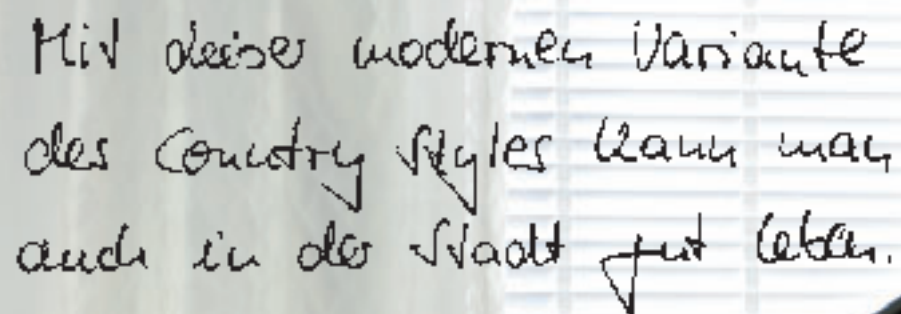 Mit dieser modernen Variante
des Country Styles kann man
auch in der Stadt gut leben.